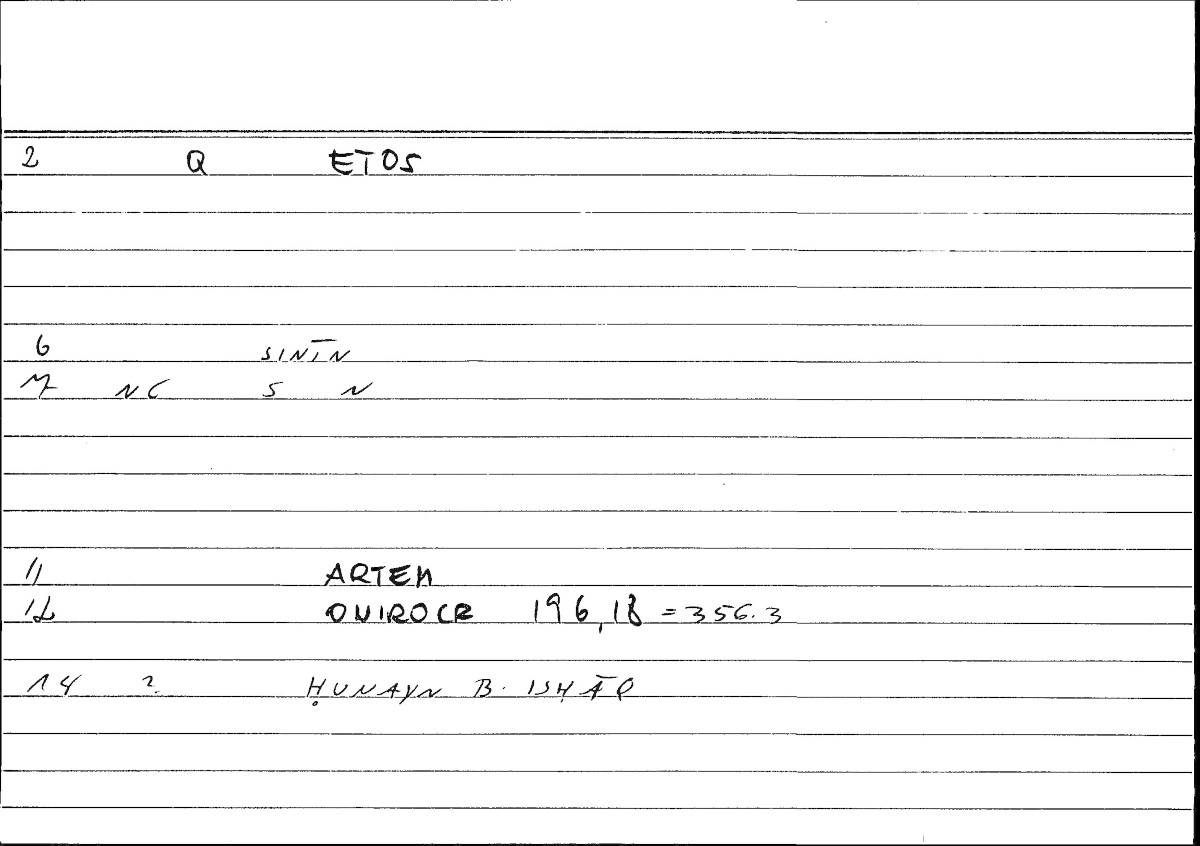 2 Q ETOS
6 SINĪN
7 NC S N
11 ARTEM
12 ONIROCR 196,18 = 356.3
14 2. ḤUNAYN B. ISḤĀQ